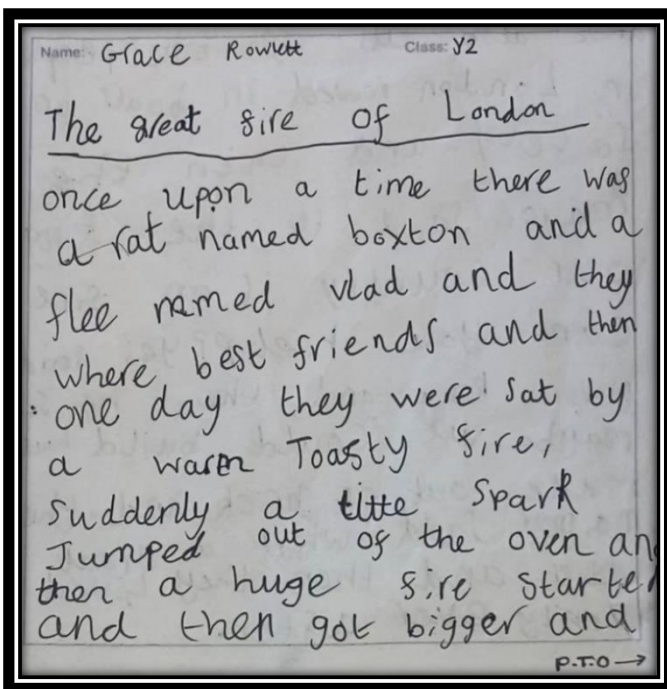 Name: Grace Rowlett Class: Y2
The great fire of London
once upon a time there was
a rat named boxton and a
flee named vlad and they
where best friends and then
one day they were sat by
a warm Toasty fire,
Suddenly a little Spark
Jumped out of the oven an
then a huge fire starte
and then got bigger and
P.T.O→